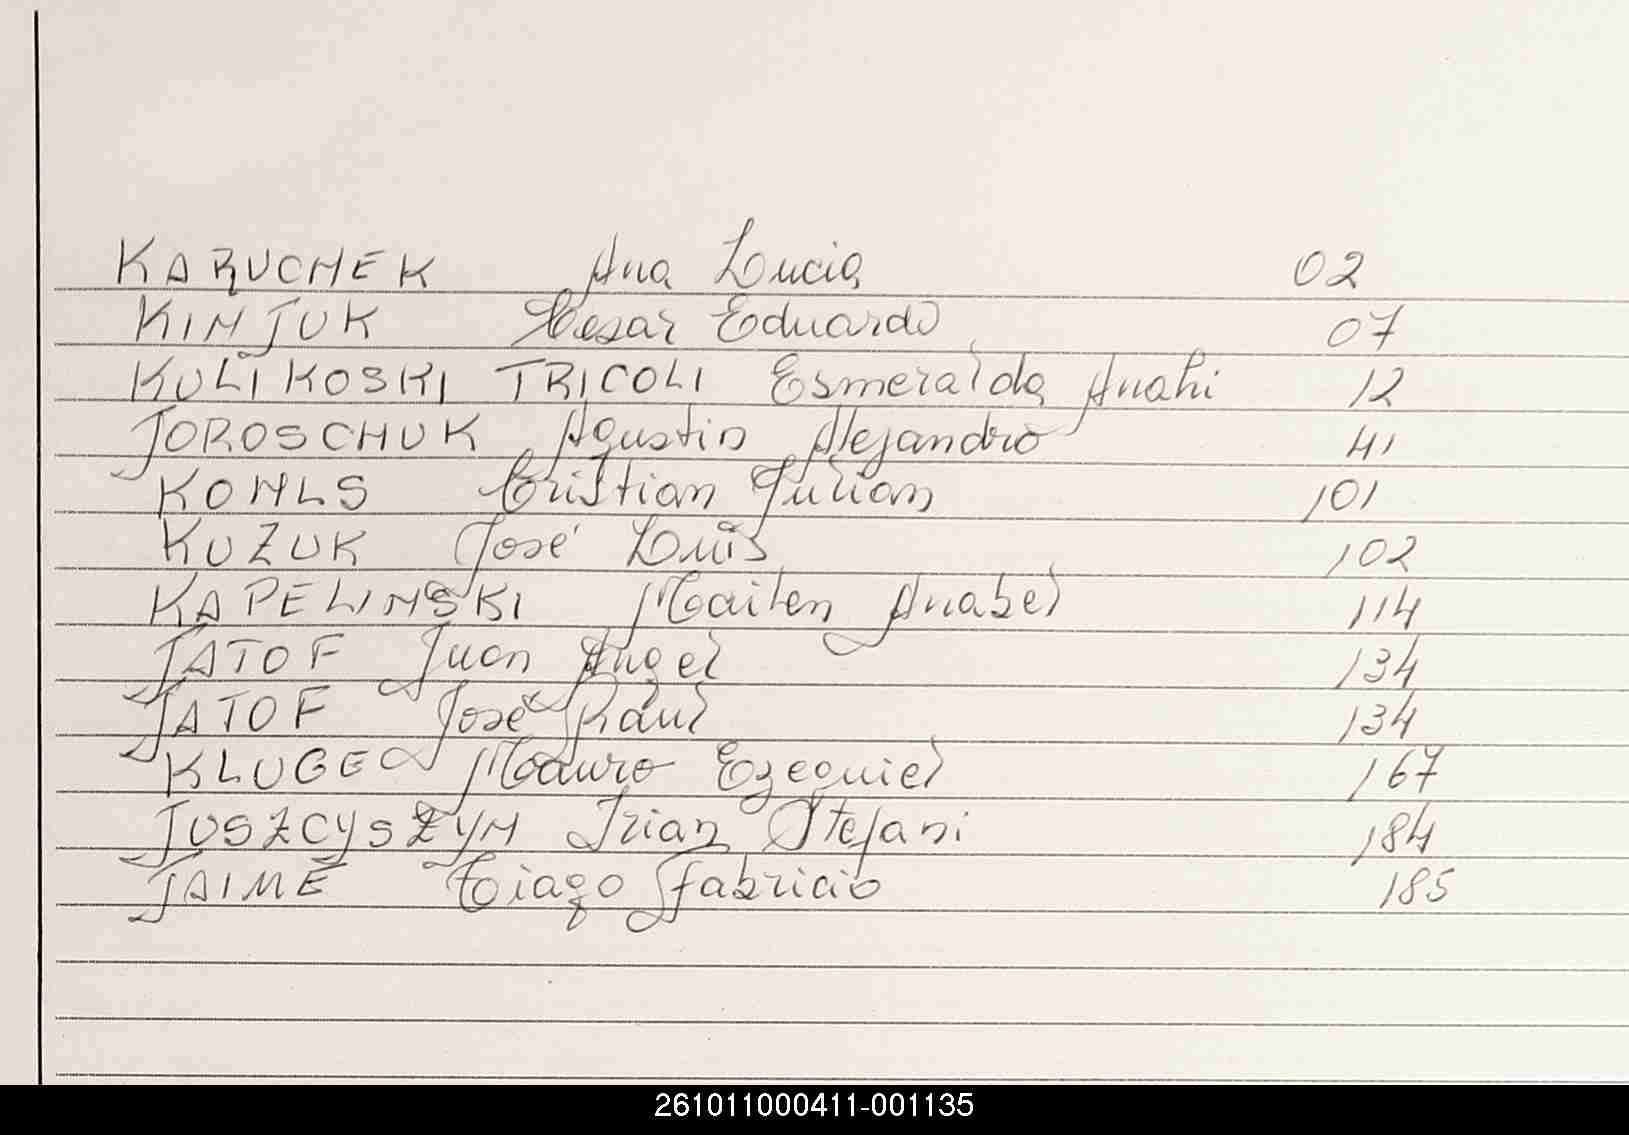 KARUCHEK Ana Lucia 02
KINJUK Cesar Eduardo 07
KULIKOSKI TRICOLI Esmeralda Anahi 12
JOROSCHUK Agustin Alejandro 41
KOHLS Cristian Julian 101
KUZUK José Luis 102
KAPELINSKI Mailen Anabel 114
JATOF Juan Angel 134
JATOF José Raul 134
KLUGE Mauro Ezequiel 167
JUSZCYSZYN Irian Stefani 184
JAIME Tiago Fabricio 185
261011000411-001135